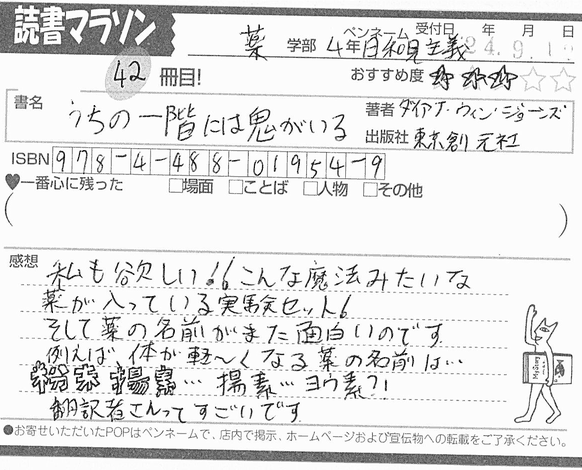 読書マラソン
薬 学部 4年 ペンネーム 日和見主義 受付日 年 月 日
24.9.1
42 冊目!
おすすめ度 ☆☆☆☆☆
書名 うちの一階には鬼がいる
著者 ダイアナ・ウィン・ジョーンズ
出版社 東京創元社
ISBN 978-4-488-01954-9
♥一番心に残った □場面 □ことば □人物 □その他
感想
私も欲しい!!こんな魔法みたいな
薬が入っている実験セット!
そして薬の名前がまた面白いのです
例えば、体が軽〜くなる薬の名前は…
揚素…揚素…ヨウ素?!
翻訳者さんってすごいです
●お寄せいただいたPOPはペンネームで、店内で掲示、ホームページおよび宣伝物への転載をご了承ください。